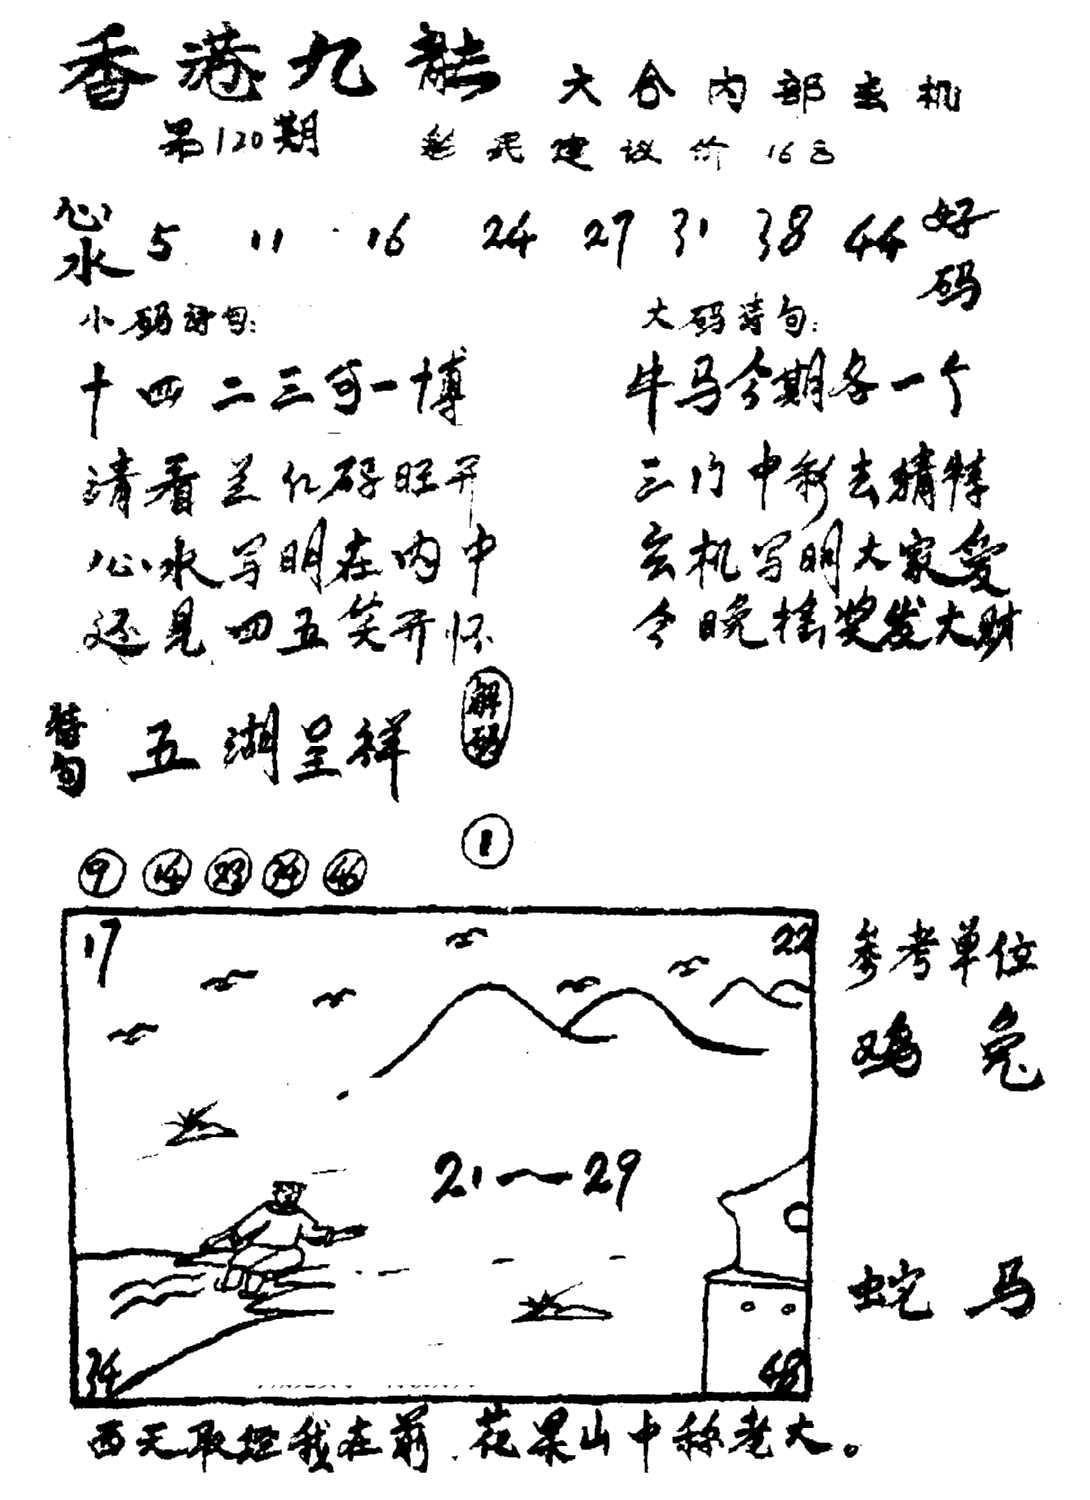 香港九龍
六合内部玄机
第120期
彩民建议价16元
心水 5 11 16 24 27 31 38 44 好码
小码诗句:
十四二三可一博
请看兰红码旺开
心水写明在内中
还见四五笑开怀
大码诗句:
牛马今期各一个
三门中彩去精特
玄机写明大家爱
今晚摇奖发大财
特句
五湖呈祥
解码
1
9 14 23 34 46
17 22
21～29
34 48
参考单位
鸡 兔
蛇 马
西天取经我在前.花果山中称老大。